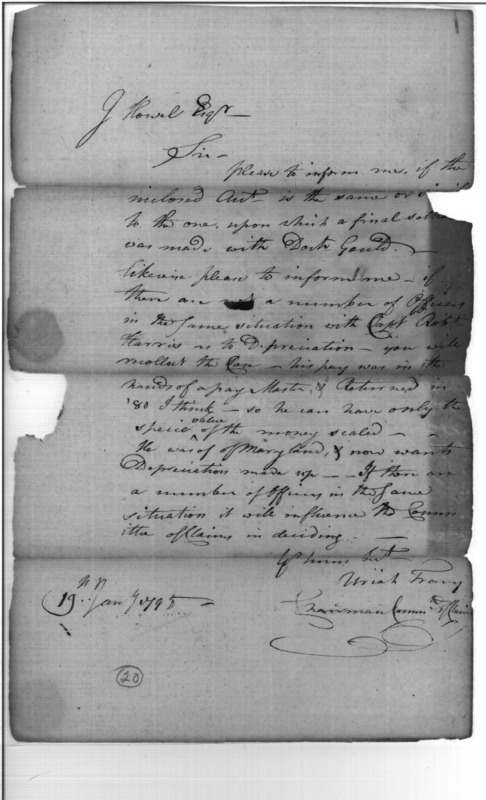 J Howel Esqr —
Sir —
please to inform me, if the
inclosed Acct is the same or
to the one, upon which a final
was made with Doctr Gould. —
likewise please to inform me — if
there are a number of Officers
in the same situation with Capt Robt
Harris as to Depreciation — you will
recollect the Case — his pay was in the
hands of a pay Master, & returned in
'80 I think — so he can have only the
specie value of the money scaled —
He was of Maryland, & now wants
Depreciation made up — If there are
a number of officers in the same
situation it will influence the Comm
ittee of Claims in deciding. —
Yr hum Sert
Uriah Tracy
Chairman Commtee of Claims
19th Jany 1795
20